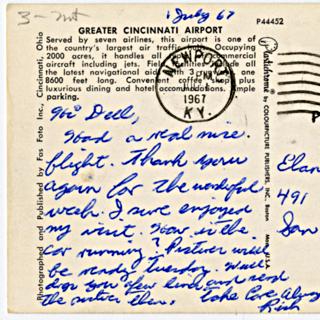 3-nut
1 July 67
P44452
GREATER CINCINNATI AIRPORT
Served by seven airlines, this airport is one of
the country's largest air traffic Occupying
2000 acres, it handles all commercial
aircraft including jets. Field all
the latest navigational aids with 3 one
8600 feet long. Convenient coffee shop plus
luxurious dining and hotel accommodations. Simple
parking.
NEWPORT
JUN
6
1967
KY.
Photographed and Published by Fas Foto Inc., Cincinnati, Ohio
Plastichrome by COLOURPICTURE PUBLISHERS, INC. Boston Mass. U.S.A.
P
Hi Dell,
Had a real nice
flight. Thank you
again for the wonderful
week. I sure enjoyed
my visit. How is the
car running? Pictures will
be ready Tuesday. Will
drop you a few lines and send
the pictures then. Take Care Always
Rich
491
San